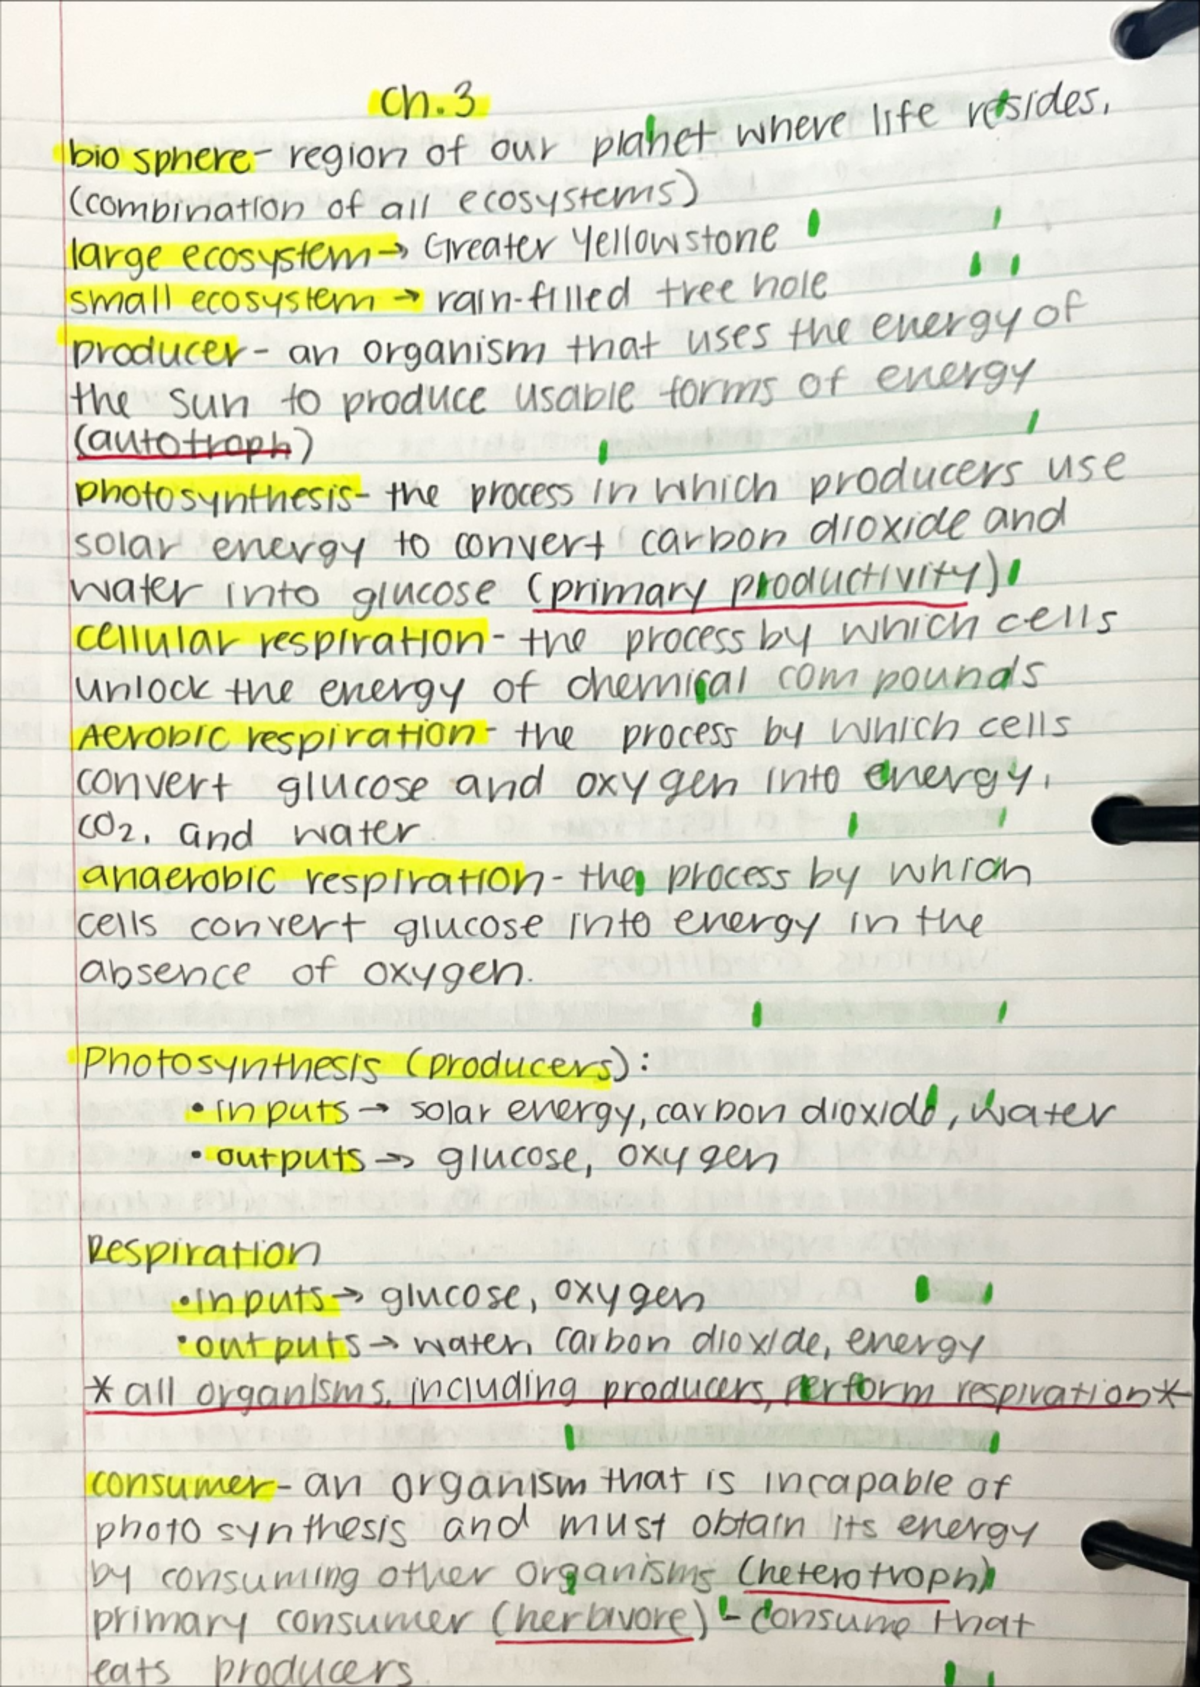 Ch.3
biosphere- region of our planet where life resides.
(combination of all ecosystems)
large ecosystem→ Greater Yellowstone
small ecosystem → rain-filled tree hole
producer- an organism that uses the energy of
the sun to produce usable forms of energy
(autotroph)
photosynthesis- the process in which producers use
solar energy to convert carbon dioxide and
water into glucose (primary productivity)
cellular respiration- the process by which cells
unlock the energy of chemical compounds
Aerobic respiration- the process by which cells
convert glucose and oxygen into energy,
CO2, and water.
anaerobic respiration- the process by which
cells convert glucose into energy in the
absence of oxygen.
Photosynthesis (producers):
• inputs → solar energy, carbon dioxide, water
• outputs → glucose, oxygen
Respiration
• inputs → glucose, oxygen
• outputs → water, carbon dioxide, energy
* all organisms, including producers, perform respiration *
consumer- an organism that is incapable of
photosynthesis and must obtain its energy
by consuming other organisms (heterotroph)
primary consumer (herbivore) - consume that
eats producers.